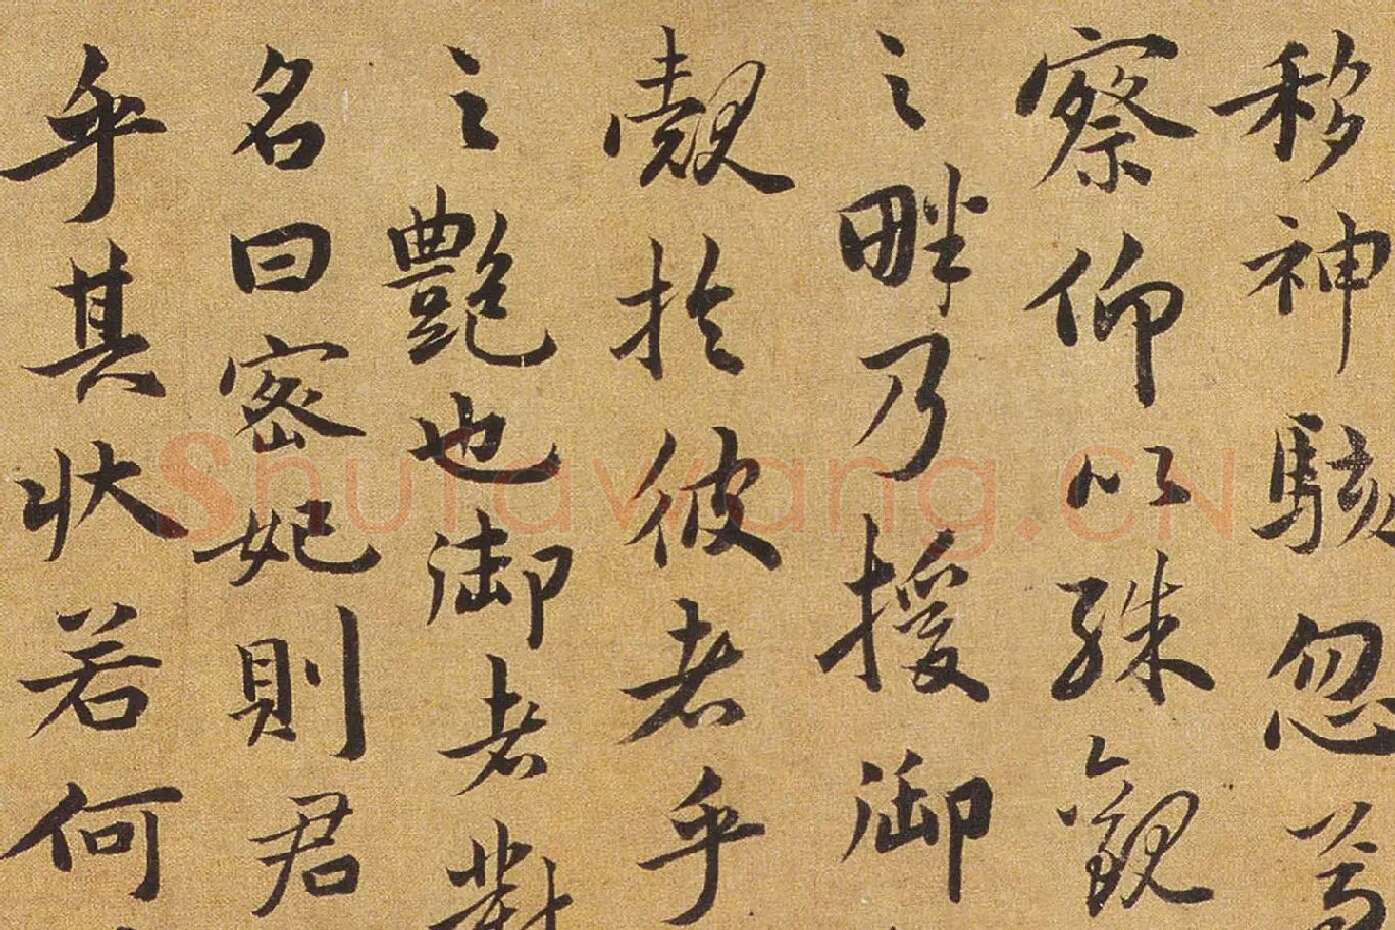 移神駭忽焉
察仰以殊觀
之畔乃援御
覿於彼者乎
之艷也御者對
名曰宓妃則君
乎其狀若何
shufawang.CN